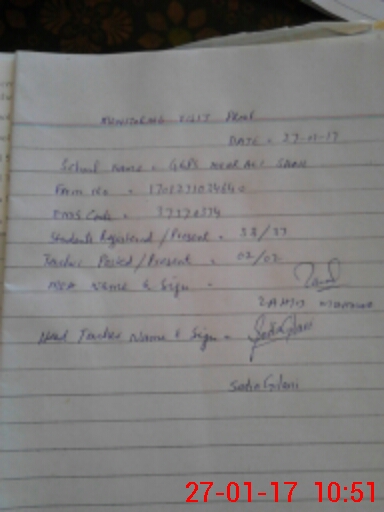 MONITORING VISIT PROOF
DATE = 27-01-17
School Name = GGPS MEHR ALI SHAH
Form No =
EMIS Code = 37370574
Students Registered / Present = 38/37
Teacher Posted / Present = 02/02
MEA Name & Sign =
Head Teacher Name & Sign = Sadia Gilani
Sadia Gilani
27-01-17 10:51